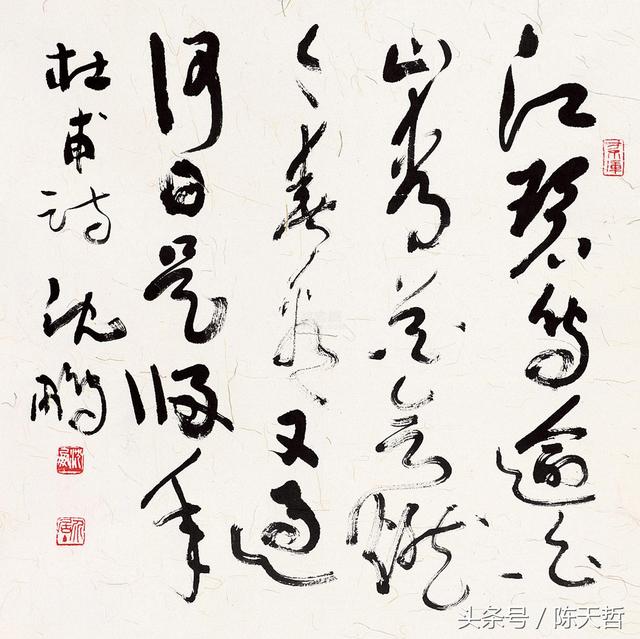 江碧鳥逾白
山青花欲燃
今春看又過
何日是歸年
杜甫詩 沈鵬
头条号 / 陈天哲